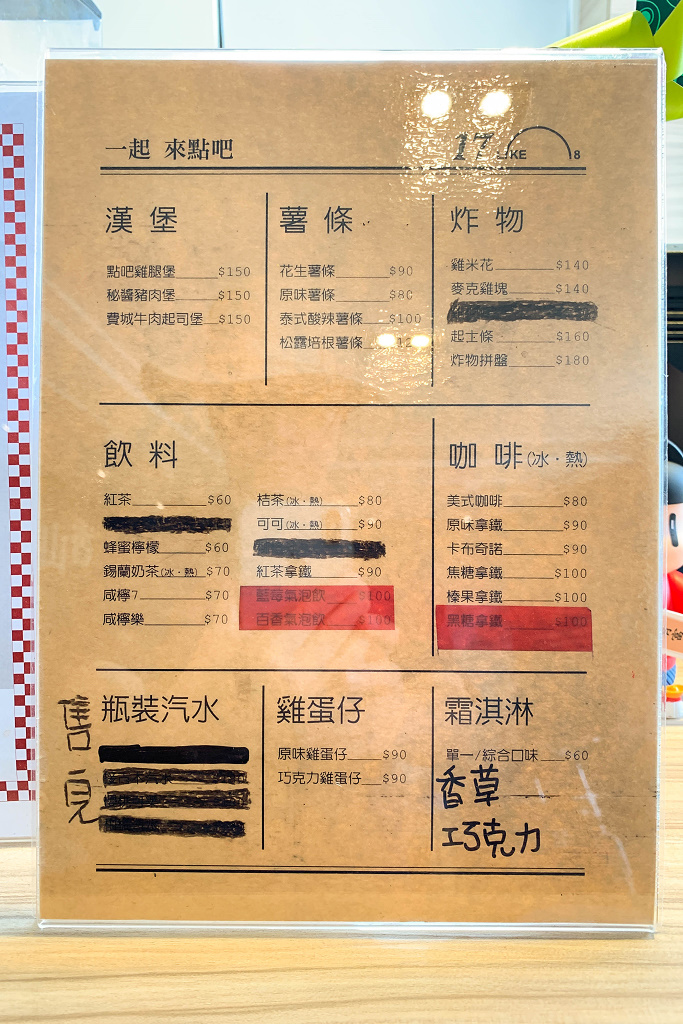 一起 來點吧
17 LIKE 8
漢堡
點吧雞腿堡 $150
秘醬豬肉堡 $150
費城牛肉起司堡 $150
薯條
花生薯條 $90
原味薯條 $80
泰式酸辣薯條 $100
松露培根薯條
炸物
雞米花 $140
麥克雞塊 $140
起士條 $160
炸物拼盤 $180
飲料
紅茶 $60
蜂蜜檸檬 $60
錫蘭奶茶(冰·熱) $70
咸檸7 $70
咸檸樂 $70
桔茶(冰·熱) $80
可可(冰·熱) $90
紅茶拿鐵 $90
藍莓氣泡飲 $100
百香氣泡飲 $100
咖啡(冰·熱)
美式咖啡 $80
原味拿鐵 $90
卡布奇諾 $90
焦糖拿鐵 $100
榛果拿鐵 $100
黑糖拿鐵 $100
瓶裝汽水
售完
雞蛋仔
原味雞蛋仔 $90
巧克力雞蛋仔 $90
霜淇淋
單一/綜合口味 $60
香草
巧克力